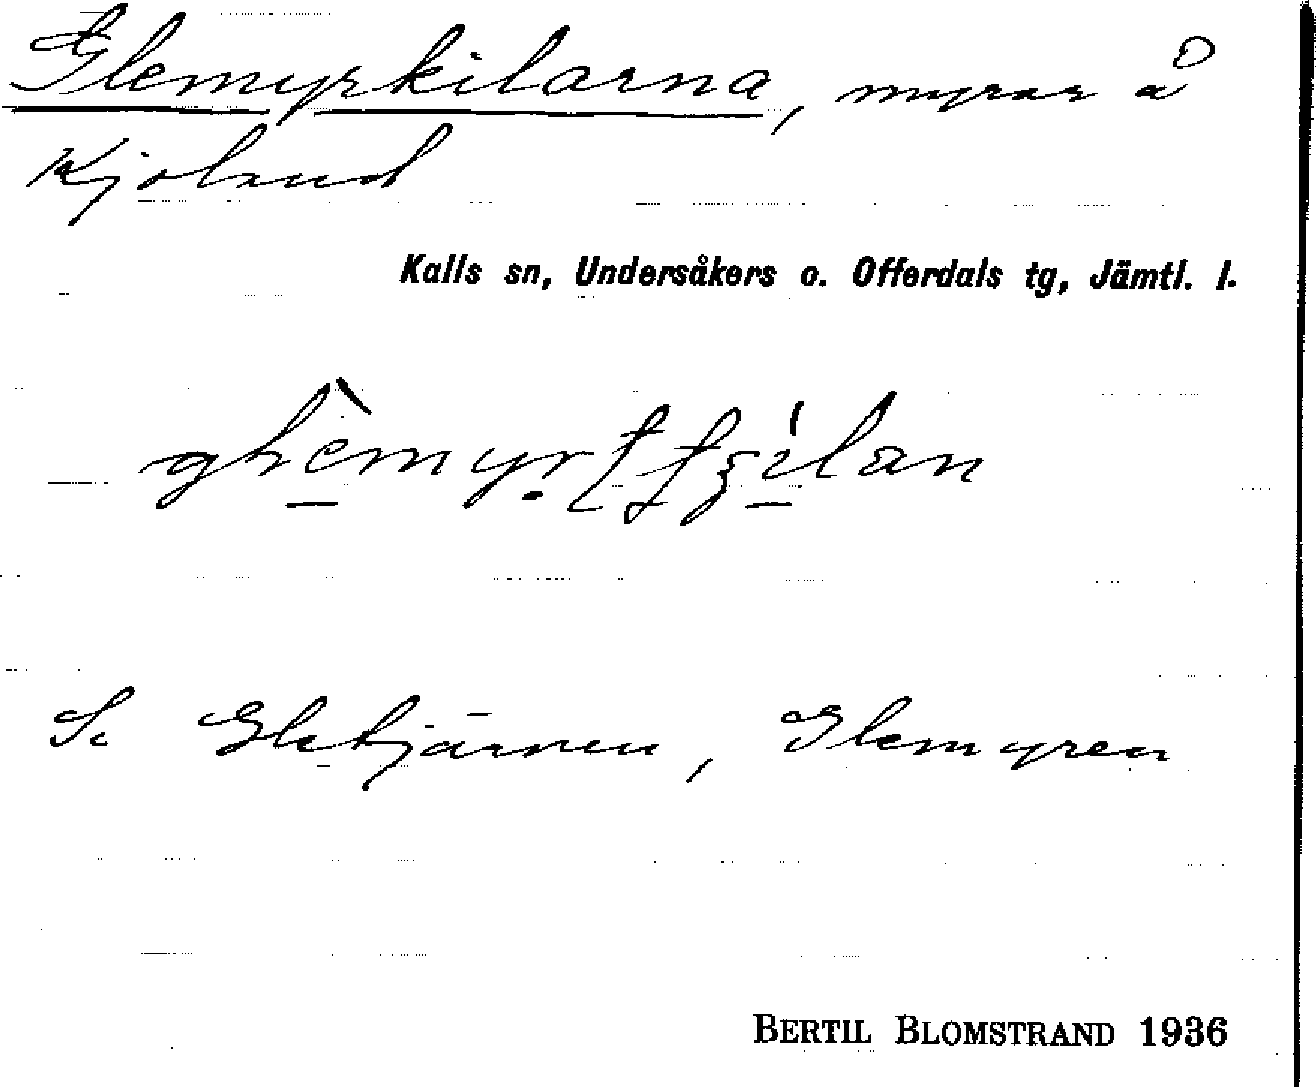 Glemyrkilarna, myrar å
Kjolrud
Kalls sn, Undersåkers o. Offerdals tg, Jämtl. l.
Se Gletjärnen, Glemyren
BERTIL BLOMSTRAND 1936